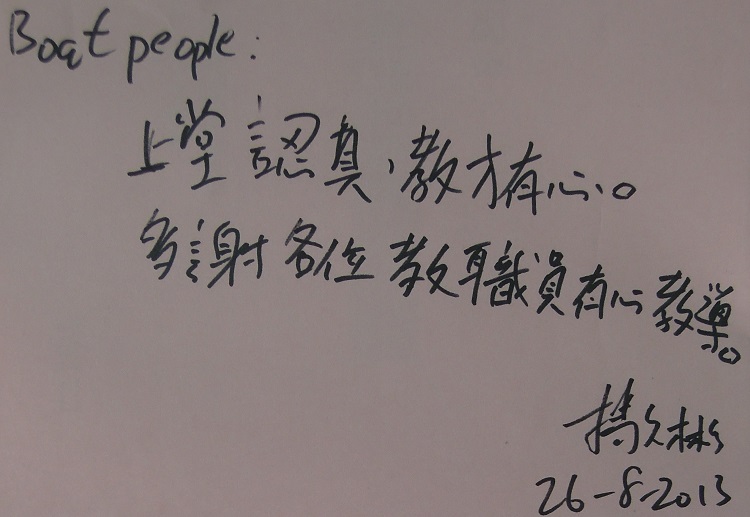 Boat people:
上堂認真，教才有心。
多謝各位教職員有心教導。
26-8-2013